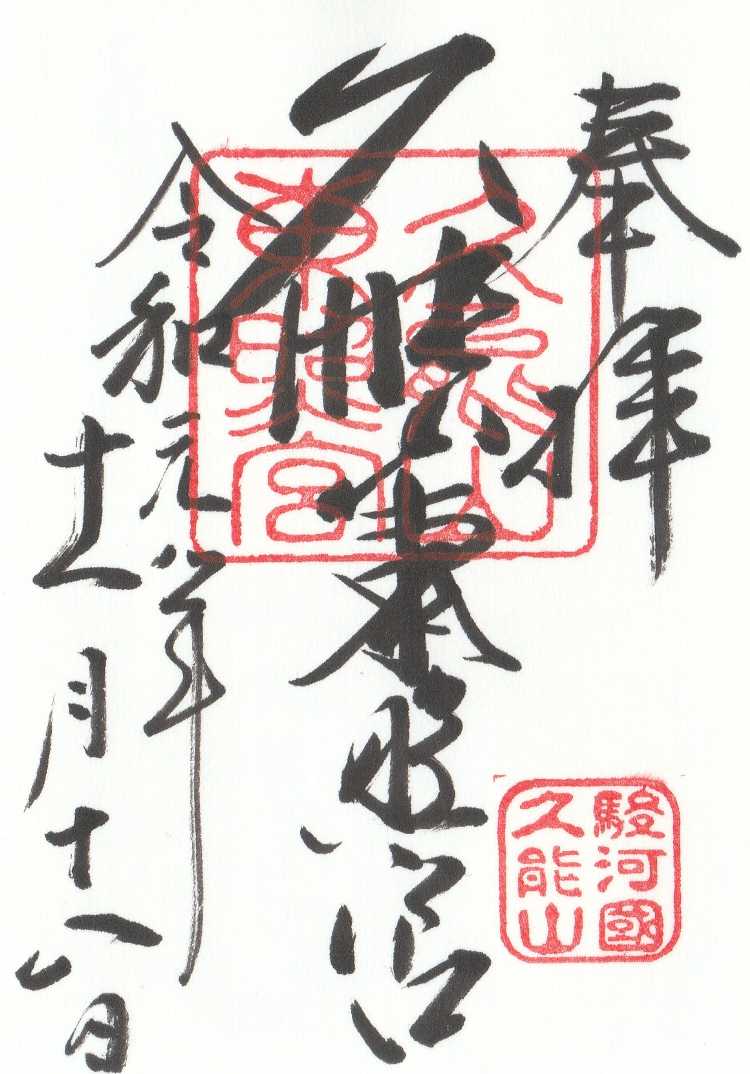 奉拝
久能山東照宮
令和元年
十一月十八日
久能山
東照宮
駿河國
久能山